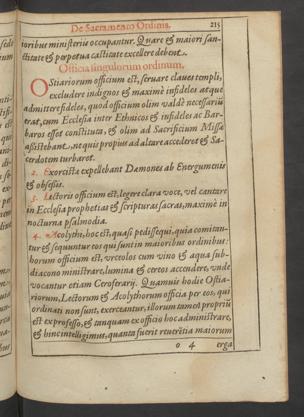 De Sacramento Ordinis. 215
ioribus ministeriū occupantur. Quare & maiori san-
ctitate & perpetua castitate excellere debent.
Officia singulorum ordinum.
Ostiariorum officium est, seruare claues templi,
excludere indignos & maximè infideles atque
admittere fideles, quod officium olim valdè necessariū
erat, cum Ecclesia inter Ethnicos & infideles ac Bar-
baros esset constituta, & olim ad Sacrificium Missæ
assistebant, ne quis propius ad altare accederet & Sa-
cerdotem turbaret.
2. Exorcista expellebant Dæmones ab Energumenis
& obsessis.
3. Lectoris officium est, legere clara voce, vel cantare
in Ecclesia prophetias & scripturas sacras, maximè in
nocturna psalmodia.
4. Acolythi, hoc est, quasi pedisequi, quia comitan-
tur & sequuntur eos qui sunt in maioribus ordinibus:
horum officium est, vrceolos cum vino & aqua sub-
diacono ministrare, lumina & cereos accendere, vnde
vocantur etiam Ceroferarij. Quamuis hodie Ostia-
riorum, Lectorum & Acolythorum officia per eos, qui
ordinati non sunt, exerceantur, illorum tamen propriū
est ex professo, & tanquam ex officio hoc administrare,
& hinc intelligimus, quanta fuerit reuerētia maiorum
o 4 erga